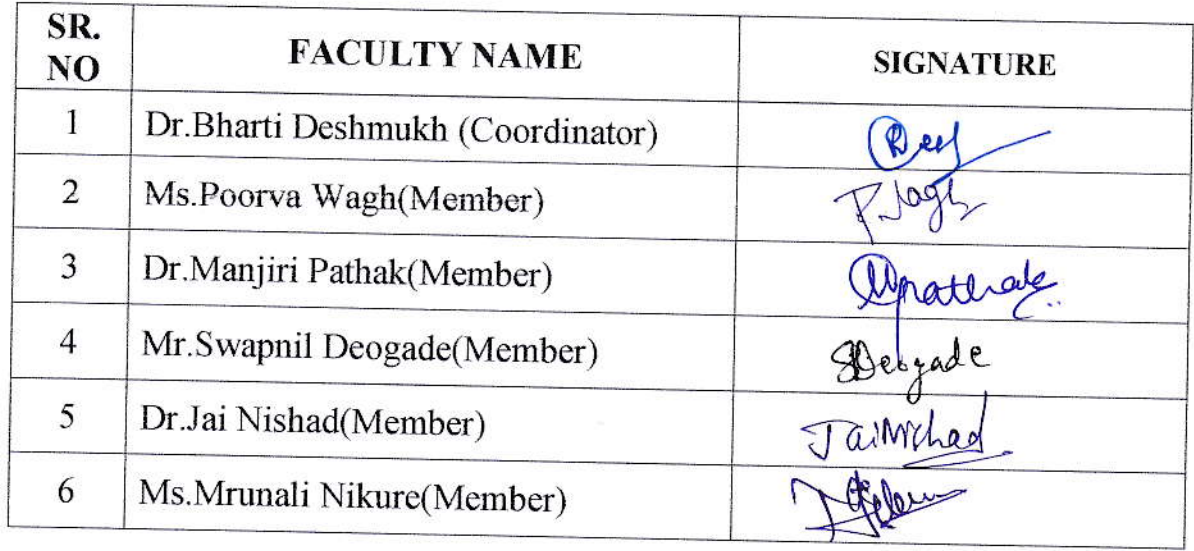 SR. NO FACULTY NAME SIGNATURE
1 Dr.Bharti Deshmukh (Coordinator)
2 Ms.Poorva Wagh(Member) P.Wagh
3 Dr.Manjiri Pathak(Member) Mpathak
4 Mr.Swapnil Deogade(Member) SDeogade
5 Dr.Jai Nishad(Member) JaiNishad
6 Ms.Mrunali Nikure(Member)